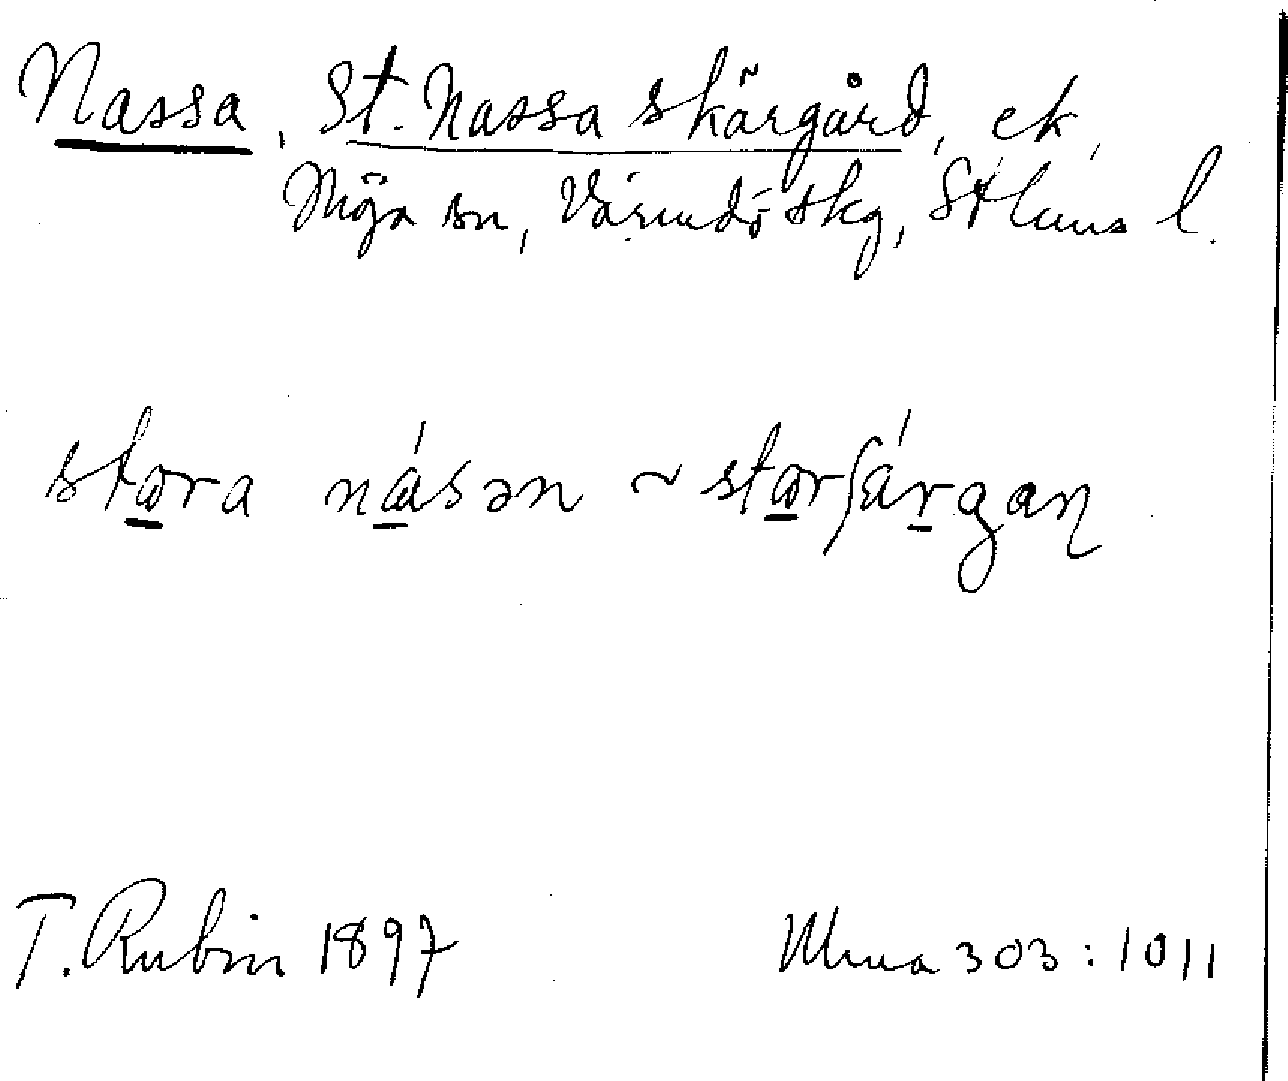 Nassa, St. Nassa skärgård, ek,
Möja sn, Värmdö skg, Sthlms l.
stora násən ~ storʃárgan
T. Rubin 1897
Ulma 303:1011